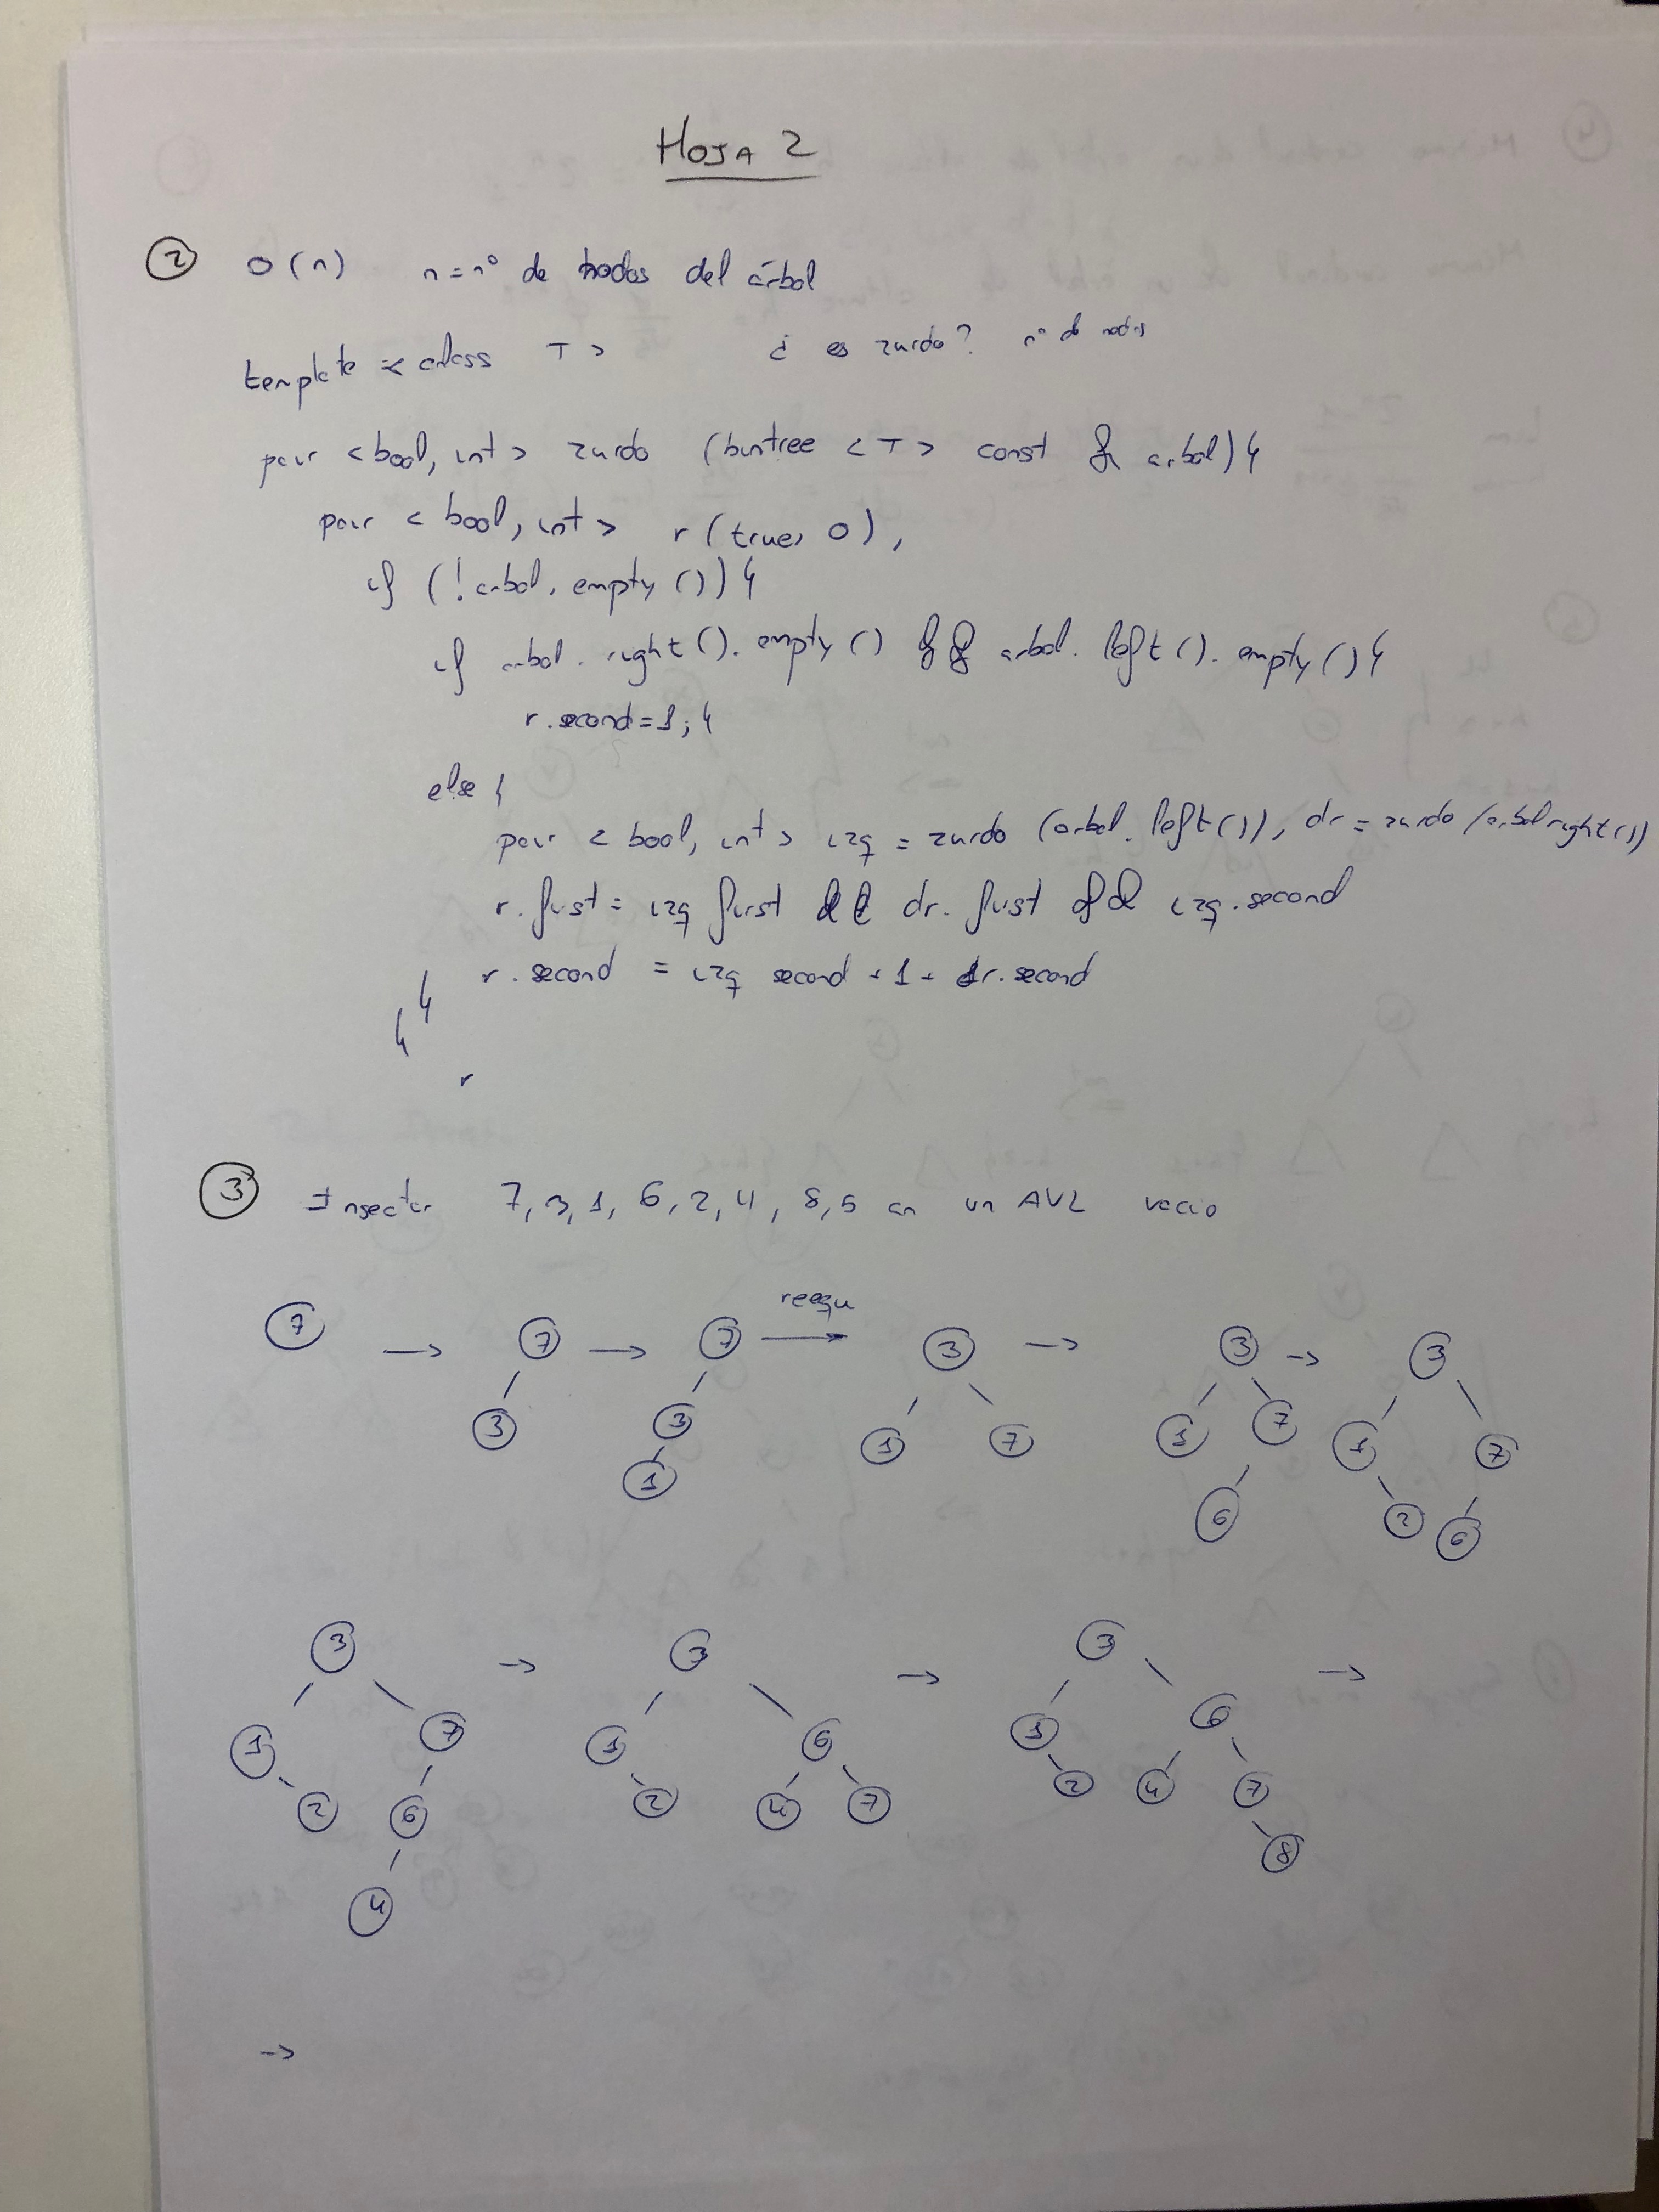 HOJA 2
② O(n) n = nº de nodos del árbol
template < class T > ¿ es zurdo? nº de nodos
pair <bool, int> zurdo (bintree <T> const & arbol) {
pair <bool, int> r (true, 0),
if (! arbol. empty ()) {
if arbol. right (). empty () && arbol. left (). empty () {
r.second = 1; }
else {
pair <bool, int> izq = zurdo (arbol. left ()), dr = zurdo (arbol right ())
r. first = izq first && dr. first && izq. second
r. second = izq second + 1 + dr. second
}
}
r
③ Insertar 7, 3, 1, 6, 2, 4, 8, 5 en un AVL vacio
reequ
7 → 7 → 7 → 3 → 3 → 3
3 3 1 7 1 7 1 7
1 6 2 6
3 → 3 → 3 →
1 7 1 6 1 6
2 6 2 4 7 2 4 7
4 8
→